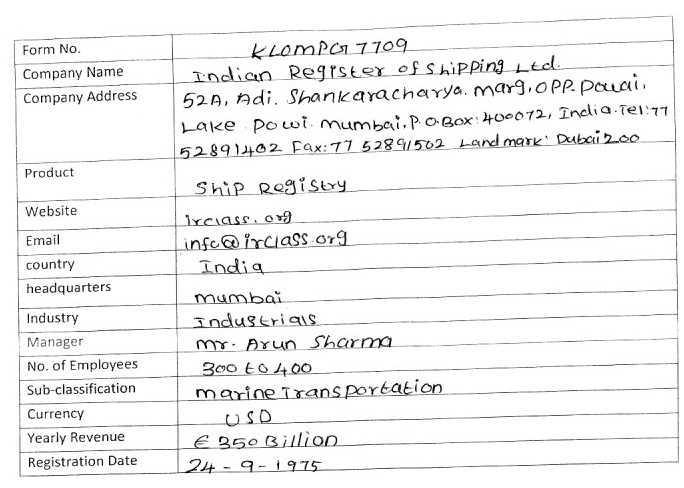 Form No. KLOMPG7709
Company Name Indian Register of Shipping Ltd.
Company Address 52A, Adi. Shankaracharya. marg, OPP. Powai,
Lake Powi. mumbai, P.O.Box: 400072, India. Tel: 77
52891402 Fax: 77 52891502 Landmark: Dubai zoo
Product Ship Registry
Website irclass.org
Email info@irclass.org
country India
headquarters mumbai
Industry Industrials
Manager mr. Arun Sharma
No. of Employees 300 to 400
Sub-classification marine Transportation
Currency USD
Yearly Revenue € 350 Billion
Registration Date 24-9-1975